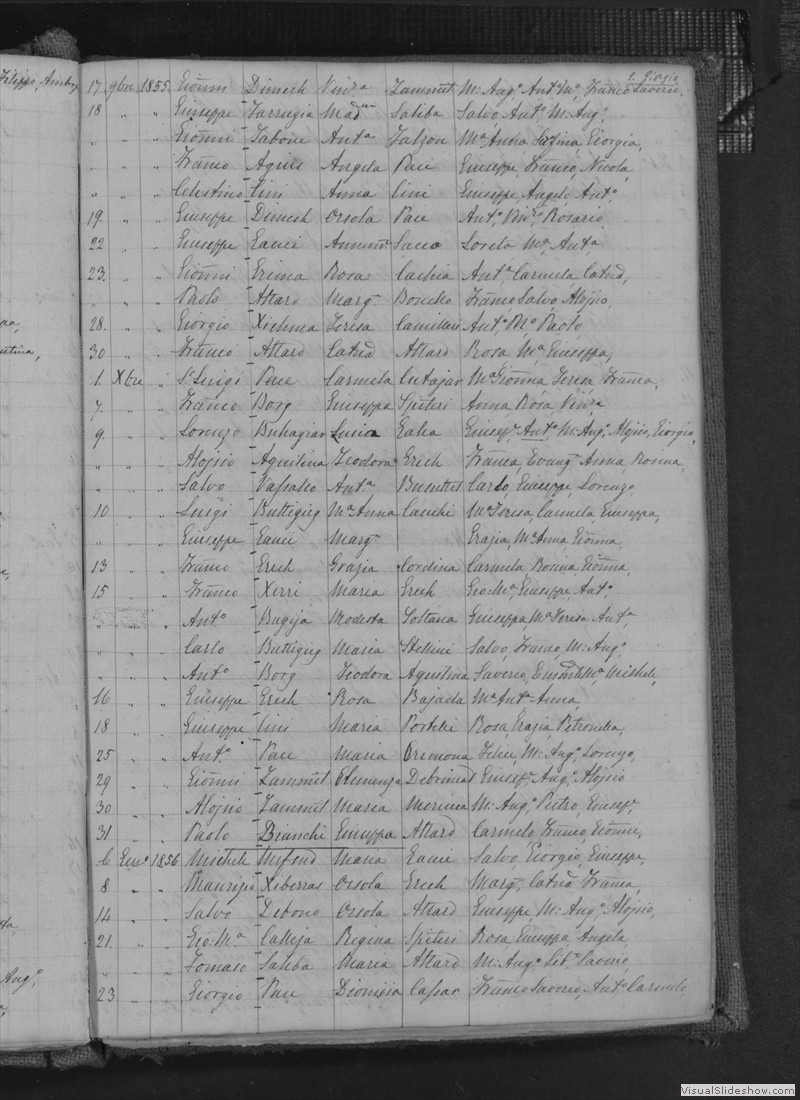 Filippo, Ambrog
S. Giorgio
17 9bre 1855 Gioãnni Dimech Vinza Zammit M: Augo Anto Mo Franco Saverio,
18 " " Giuseppe Farrugia Madna Saliba Salvo Anto M: Augo
" " " Gioãnni Sabone Anta Falzon Ma Anna Satina, Giorgia,
" " " Franco Agius Angela Pace Giuseppe, Franco, Nicola
" " " Celestino Cini Anna Cini Giuseppe, Angelo, Anto,
19. " " Giuseppe Dimech Orsola Pace Anto, Vinzo Rosario
22 " " Giuseppe Gauci Annunta Sacco Loreta Ma Anta
23. " " Gioãnni Grima Rosa Cachia Anta Carmela, Catna,
" " " Paolo Attard Marg. Franco Salvo, Alojsio,
28. " " Giorgio Xichma Teresa Camilleri Anto Mo Paolo,
30 " " Franco Attard Catna Attard Rosa Ma Giuseppa,
1. Xbre " Sr Luigi Pace Carmela Cutajar Ma Gioãnna, Teresa, Franca,
7. " " Franco Borg Giuseppa Spiteri Anna, Rosa, Vinza
9. " " Lorenzo Buhagiar Lucia Galea Giusepe, Anto M: Augo, Alojsio, Giorgio,
" " " Alojsio Aquilina Teodora Grech Franca, Evang. Anna, Rosina,
" " " Salvo Vassallo Anta Busuttil Carlo, Giuseppe, Lorenzo,
10 " " Luigi Buttigieg Ma Anna Cauchi Ma Teresa, Carmela, Giuseppa,
" " " Giuseppe Gauci Marg. Grazia, Ma Anna Gioãnna,
13 " " Franco Grech Grazia Cordina Carmela, Rosina Gioãnna,
15 " " Franco Xerri Maria Grech Gio: Ma, Giuseppe, Anto,
" " " Anto Bugeja Modesta Soltana Giuseppa, Ma Teresa, Anta
" " " Carlo Buttigieg Maria Stellini Salvo, Franco, M: Augo,
" " " Anto Borg Teodora Aquilina Saverio, Ma Michele,
16 " " Giuseppe Grech Rosa Bajada Ma Anta Anna,
18 " " Giuseppe Cini Maria Portelli Rosa, Grazia, Petronilla,
25 " " Anto Pace Maria Cremona Felice, M: Augo, Lorenzo,
29 " " Gioãnni Zammit Clemenza Debrincat Giusepe, Augo, Alojsio
30 " " Alojsio Zammit Maria Mercieca M: Augo, Pietro, Giusepe,
31 " " Paolo Bianchi Giuseppa Attard Carmelo, Franco, Gioãnni,
6 Geno 1856 Michele Mifsud Maria Gauci Salvo, Giorgio, Giuseppe,
8 " " Maurizio Xiberras Orsola Grech Marg. Catna, Franca,
14 " " Salvo Debono Orsola Attard Giuseppe, M: Augo, Alojsio,
21. " " Gio: Ma Calleja Regina Spiteri Rosa, Giuseppa, Angela,
" " " Tomaso Saliba Maria Attard M: Augo Saverio,
23 " " Giorgio Pace Dionisia Cassar Franco Saverio, Anto Carmelo
Augo,
VisualSlideshow.com